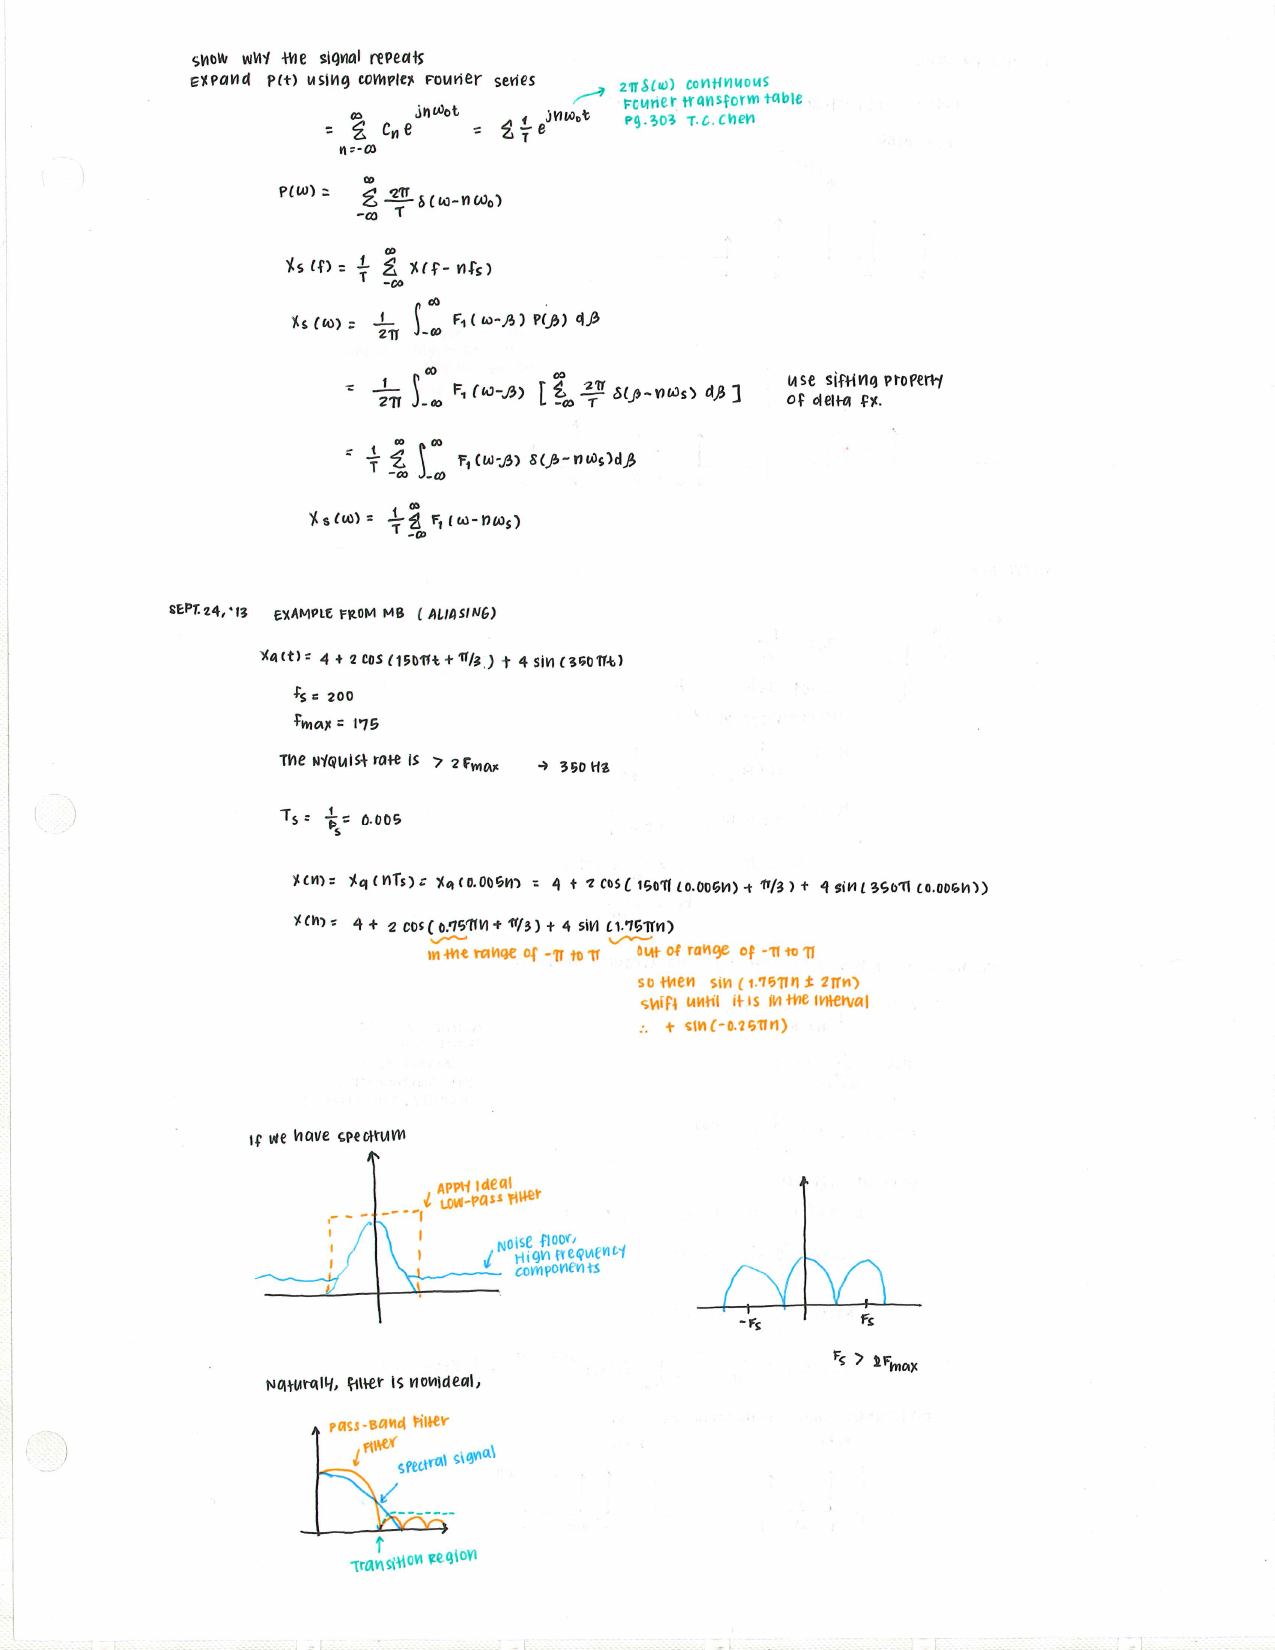 show why the signal repeats
Expand P(t) using complex Fourier series
= ∞ Σ n=-∞ Cn e^jnω₀t = Σ 1/T e^jnω₀t
→ 2πδ(ω) continuous
Fourier transform table
Pg. 303 T.C. Chen
P(ω) = ∞ Σ -∞ 2π/T δ(ω-nω₀)
Xs(f) = 1/T ∞ Σ -∞ X(f-nfs)
Xs(ω) = 1/2π ∫-∞^∞ F₁(ω-β) P(β) dβ
= 1/2π ∫-∞^∞ F₁(ω-β) [∞ Σ -∞ 2π/T δ(β-nωs) dβ]
use sifting property
of delta fx.
= 1/T ∞ Σ -∞ ∫-∞^∞ F₁(ω-β) δ(β-nωs)dβ
Xs(ω) = 1/T ∞ Σ -∞ F₁(ω-nωs)
SEPT. 24, '13 EXAMPLE FROM MB (ALIASING)
Xa(t) = 4 + 2 cos(150πt + π/3) + 4 sin(350πt)
fs = 200
fmax = 175
The Nyquist rate is > 2Fmax → 350 Hz
Ts = 1/Fs = 0.005
X(n) = Xa(nTs) = Xa(0.005n) = 4 + 2 cos(150π(0.005n) + π/3) + 4 sin(350π(0.005n))
X(n) = 4 + 2 cos(0.75πn + π/3) + 4 sin(1.75πn)
in the range of -π to π
out of range of -π to π
so then sin(1.75πn ± 2πn)
shift until it is in the interval
∴ + sin(-0.25πn)
If we have spectrum
APPLY ideal
LOW-pass filter
Noise floor,
High frequency
components
-Fs
Fs
Fs > 2Fmax
Naturally, filter is nonideal,
Pass-Band Filter
Filter
spectral signal
Transition Region